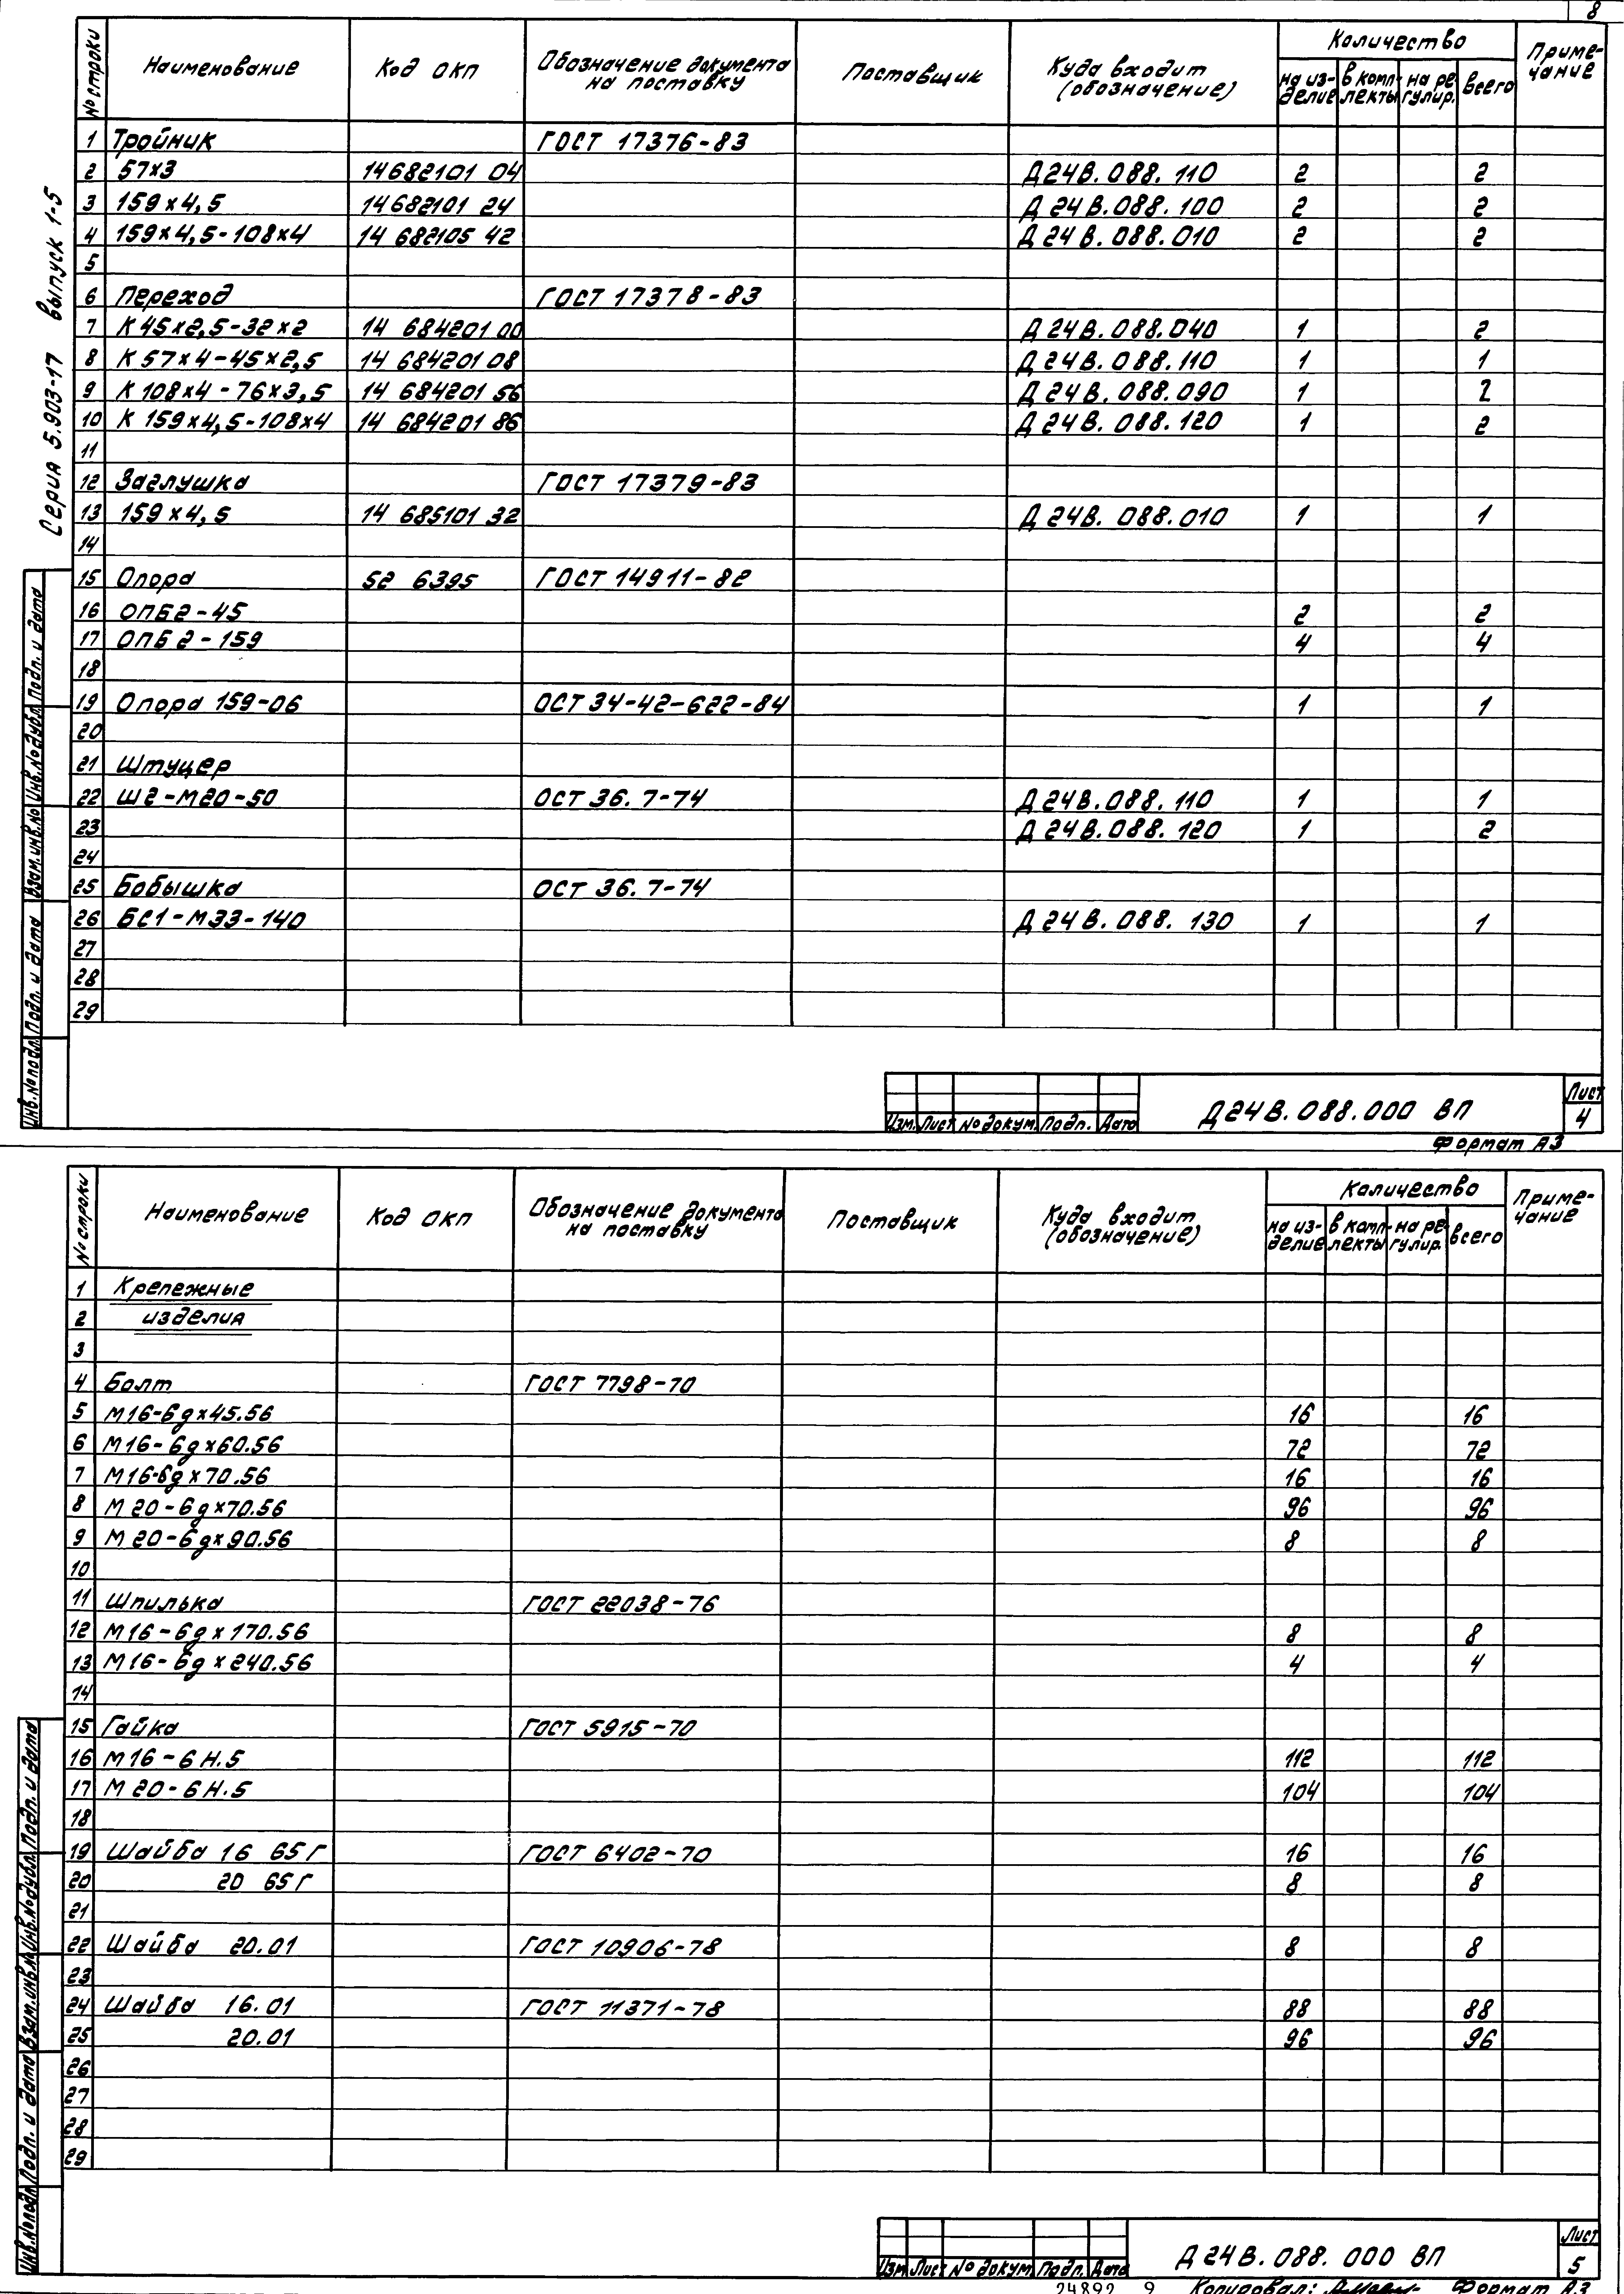 8
Серия 5.903-17 выпуск 1-5
№ строки Наименование Код ОКП Обозначение документа на поставку Поставщик Куда входит (обозначение) Количество Приме-чание
на из-делие в комп-лекты на ре-гулир. всего
1 Тройник ГОСТ 17376-83
2 57х3 14682101 04 Д24В.088.110 2 2
3 159х4,5 14682101 24 Д24В.088.100 2 2
4 159х4,5-108х4 14 682105 42 Д24В.088.010 2 2
5
6 Переход ГОСТ 17378-83
7 К45х2,5-32х2 14 684201 00 Д24В.088.040 1 2
8 К57х4-45х2,5 14 684201 08 Д24В.088.110 1 1
9 К108х4-76х3,5 14 684201 56 Д24В.088.090 1 2
10 К159х4,5-108х4 14 684201 86 Д24В.088.120 1 2
11
12 Заглушка ГОСТ 17379-83
13 159х4,5 14 685101 32 Д24В.088.010 1 1
14
15 Опора 52 6395 ГОСТ 14911-82
16 ОПБ2-45 2 2
17 ОПБ2-159 4 4
18
19 Опора 159-06 ОСТ 34-42-622-84 1 1
20
21 Штуцер
22 Ш2-М20-50 ОСТ 36.7-74 Д24В.088.110 1 1
23 Д24В.088.120 1 2
24
25 Бобышка ОСТ 36.7-74
26 БС1-М33-140 Д24В.088.130 1 1
27
28
29
Инв.№подл. Подп. и дата Взам.инв.№ Инв.№дубл. Подп. и дата
Изм. Лист № докум. Подп. Дата
Д24В.088.000 ВП
Лист
4
Формат А3
№ строки Наименование Код ОКП Обозначение документа на поставку Поставщик Куда входит (обозначение) Количество Приме-чание
на из-делие в комп-лекты на ре-гулир. всего
1 Крепежные
2 изделия
3
4 Болт ГОСТ 7798-70
5 М16-6gх45.56 16 16
6 М16-6gх60.56 72 72
7 М16-6gх70.56 16 16
8 М20-6gх70.56 96 96
9 М20-6gх90.56 8 8
10
11 Шпилька ГОСТ 22038-76
12 М16-6gх170.56 8 8
13 М16-6gх240.56 4 4
14
15 Гайка ГОСТ 5915-70
16 М16-6Н.5 112 112
17 М20-6Н.5 104 104
18
19 Шайба 16 65Г ГОСТ 6402-70 16 16
20 20 65Г 8 8
21
22 Шайба 20.01 ГОСТ 10906-78 8 8
23
24 Шайба 16.01 ГОСТ 11371-78 88 88
25 20.01 96 96
26
27
28
29
Инв.№подл. Подп. и дата Взам.инв.№ Инв.№дубл. Подп. и дата
Изм. Лист № докум. Подп. Дата
Д24В.088.000 ВП
Лист
5
24892 9 Копировал: Формат А3